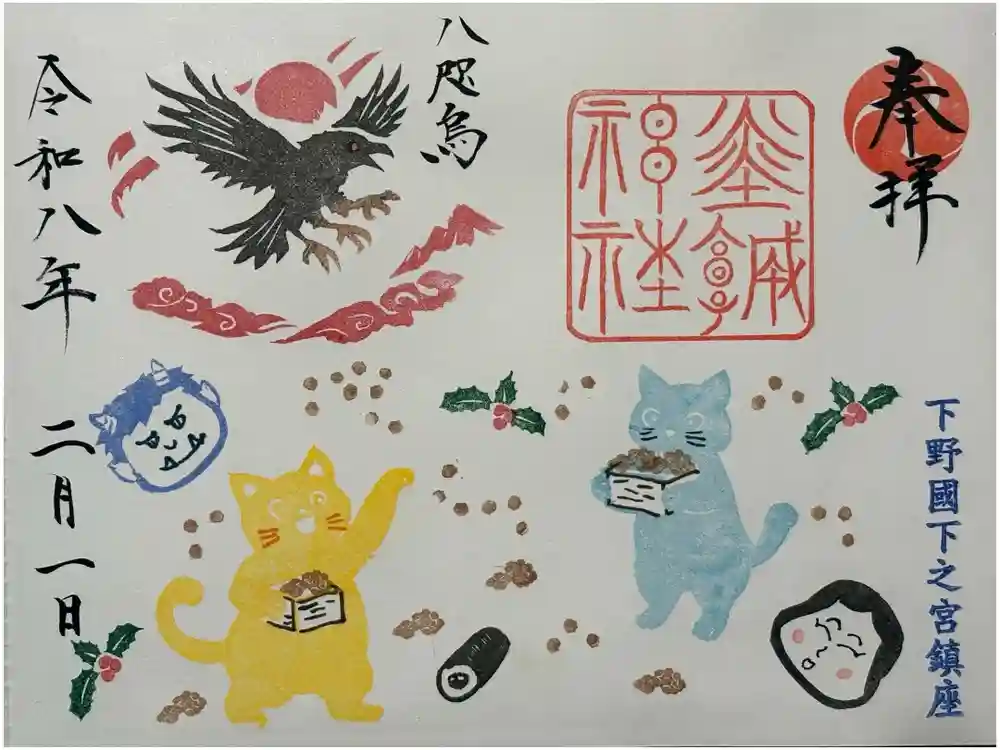 奉拝
神社
下野國下之宮鎮座
八咫烏
令和八年
二月一日